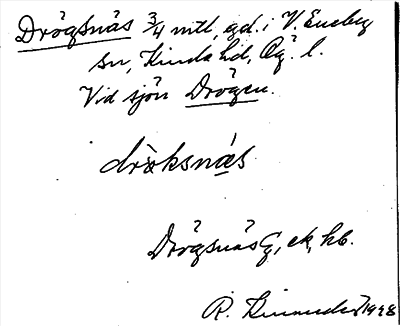 Drögsnäs 3/4 mtl, gd. i V. Eneby
sn, Kinda hd, Ög. l.
Vid sjön Drögen.
dröksnäs
Drögsnäs G, ek, kb.
R. 1948